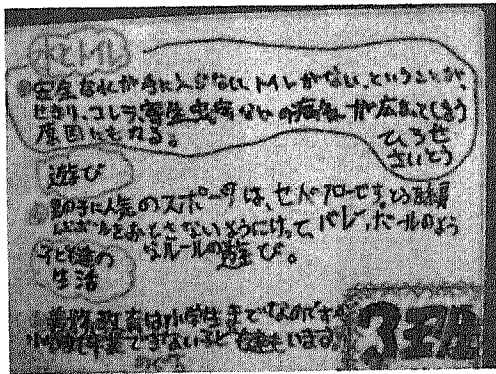 水とトイレ
安全な水が手に入らないし、トイレがない、ということが、
せきり、コレラ、寄生虫病などの病気が広まってしまう
原因にもなる。
ひろせ
さいとう
遊び
男の子に人気のスポーツは、セパタクローです。
ボールをおとさないようにけって、バレーボールのよう
なルールの遊び。
子ども達の
生活
義務教育は小学生までなのですが
小学校を卒業できない子ども達もいます。
3班